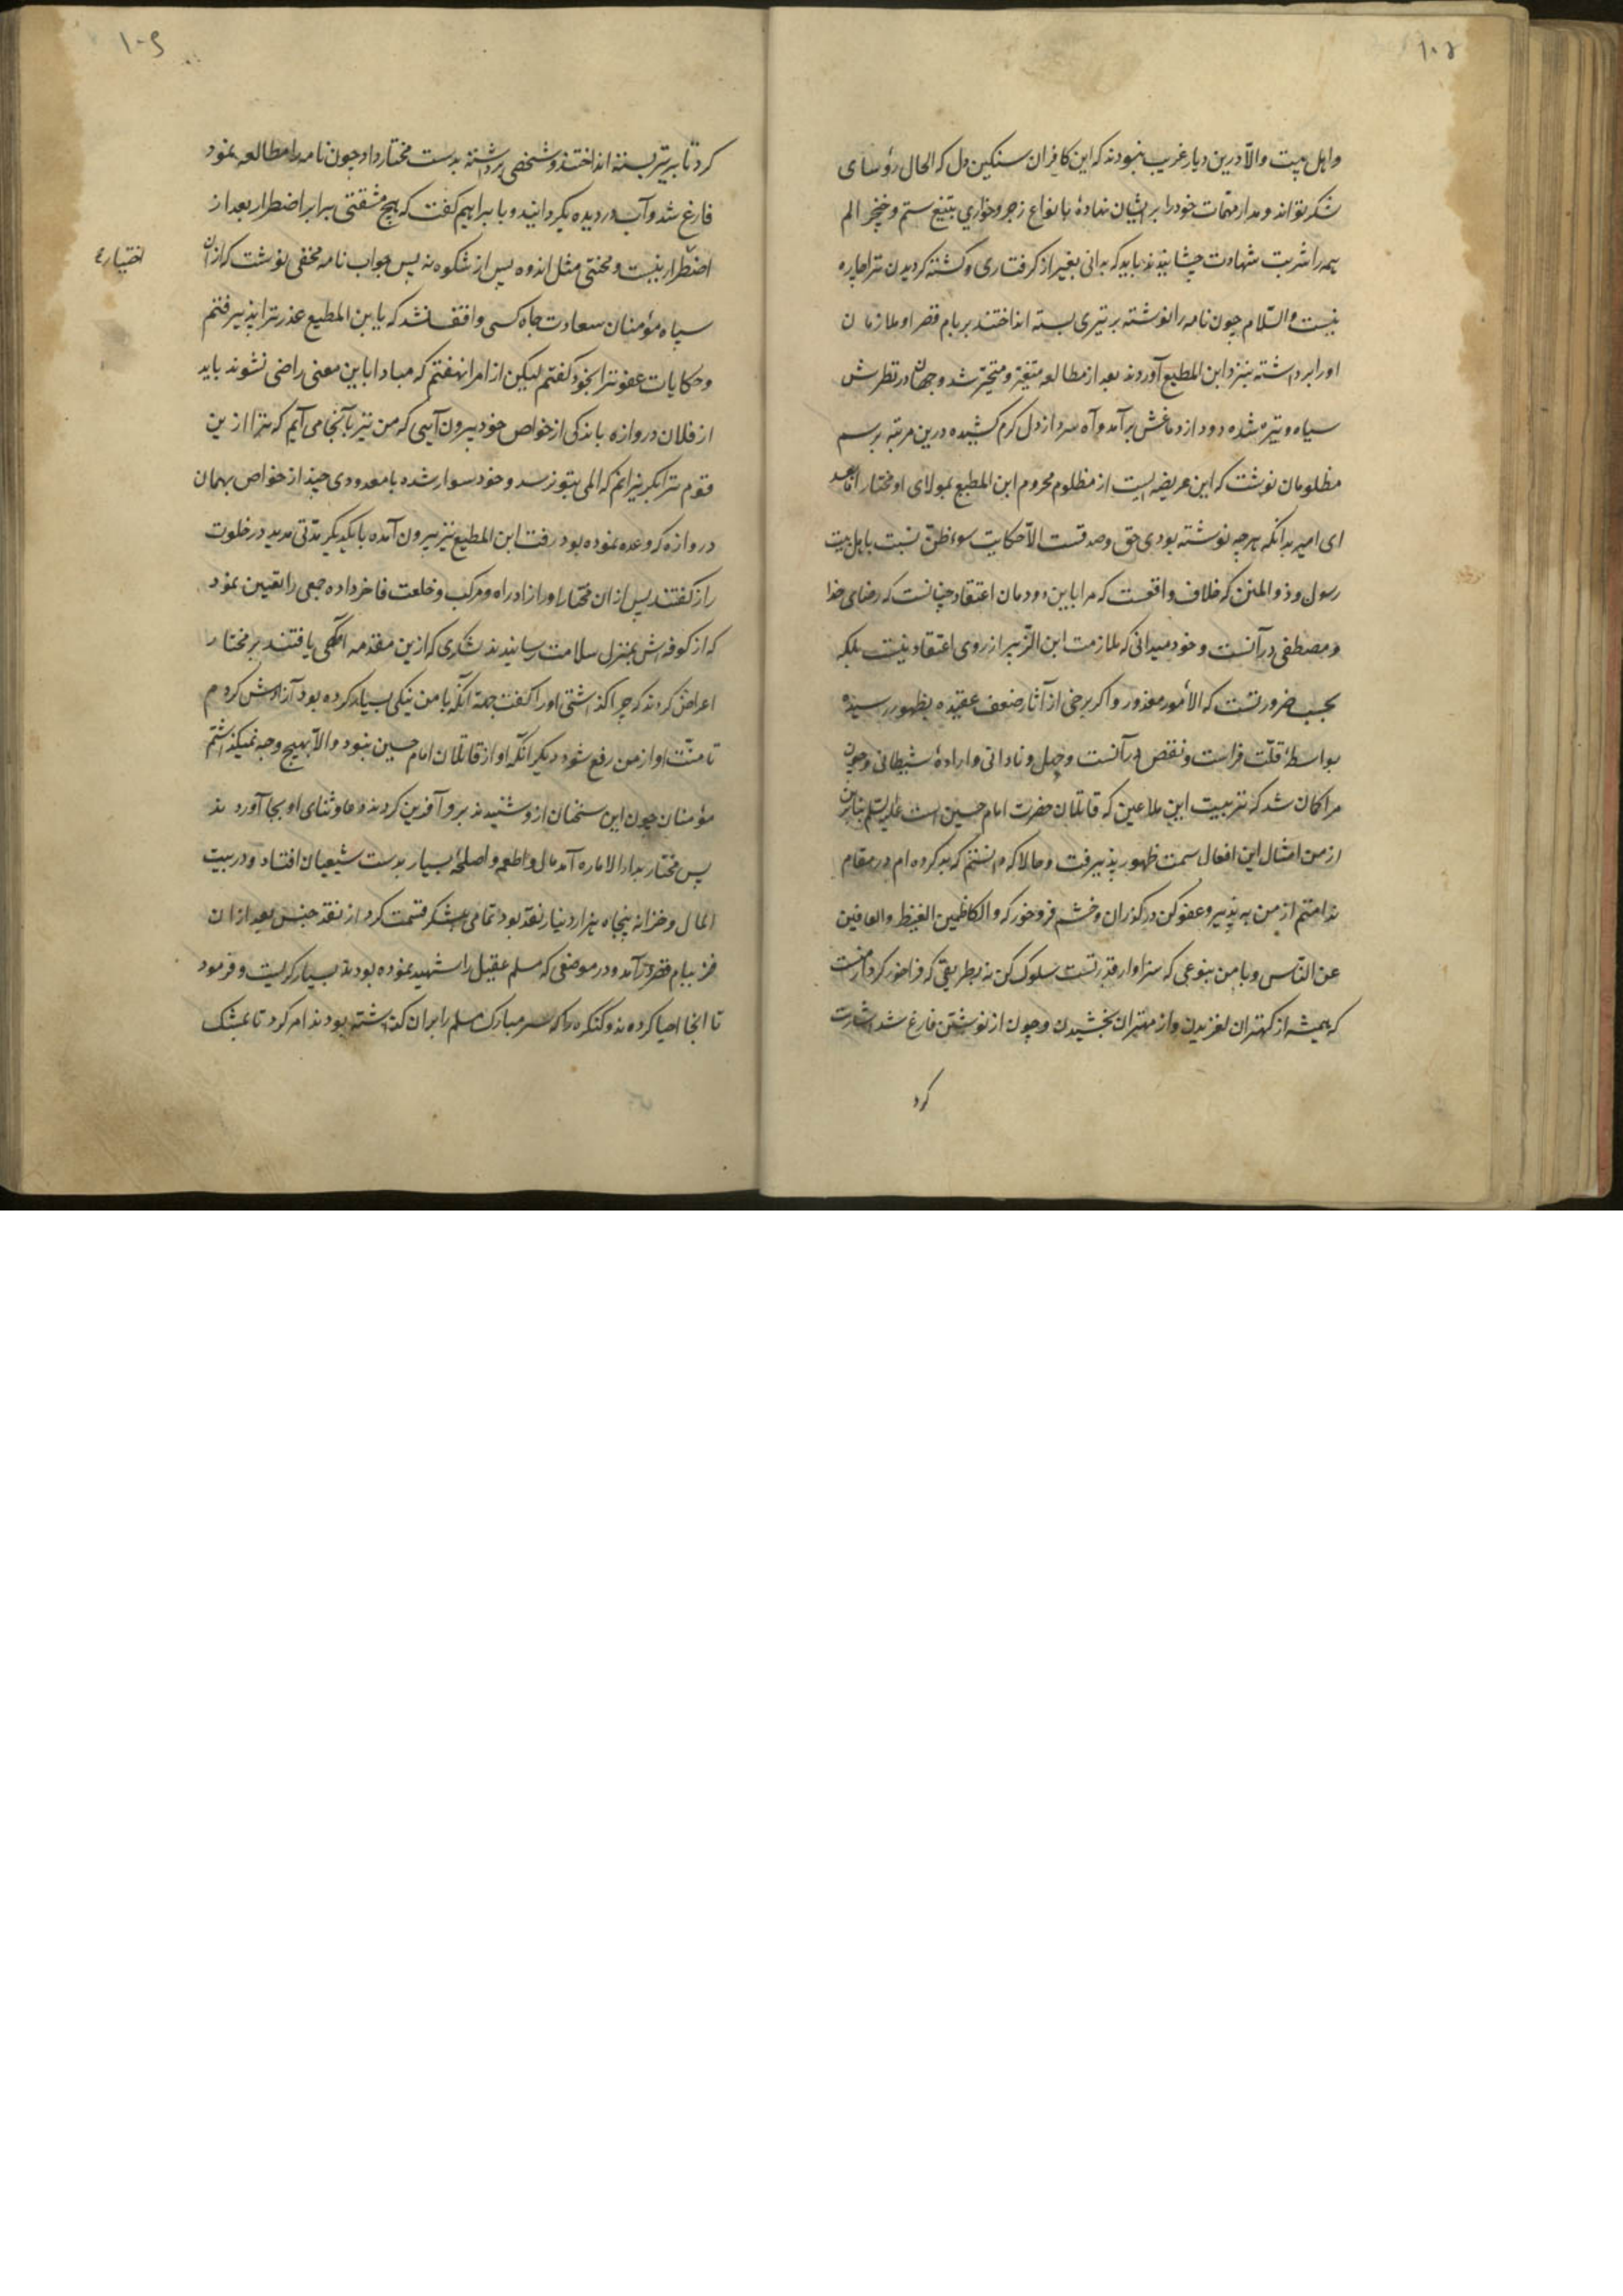 ۱۰۸
واهل بیت والّا درین دیار غریب نبودند که این کافران سنکین دل که الحال رؤسای
لشکر تواند ومدار مهمّات خود را بر ایشان نهادهٔ بانواع زجر وخواری بتیغ ستم وخنجر الم
همه را شربت شهادت چشانیدند باید که بدانی بغیر از کرفتاری وکشته کردیدن ترا چاره
نیست والسّلام چون نامه را نوشته بر تیری بسته انداختند بر بام قصر او ملازمان
او را برداشته بنزد ابن المطیع آوردند بعد از مطالعه متغیّر ومتحیّر شد وجهان در نظرش
سیاه وتیره شده دود از دماغش برآمد وآه سرد از دل کرم کشیده درین مرتبه برسم
مظلومان نوشت که این عریضه ایست از مظلوم محروم ابن المطیع بمولای او مختار امّا بعد
ای امیر بدانکه هرچه نوشته بودی حق وصدقست الّا حکایت سوء ظنّ نسبت باهل بیت
رسول وذو المنن که خلاف واقعست که مرا باین دودمان اعتقاد چنانست که رضای خدا
ومصطفی در آنست وخود میدانی که ملازمت ابن الزّبیر از روی اعتقاد نیست بلکه
بحسب ضرورتست که الأمور معذور واکر برخی از آثار ضعف عقیده بظهور رسیده
بواسطهٔ قلّت فراست ونقص درآنست وجهل ونادانی وارادهٔ شیطانی وچون
مرا کان شد که تربیت این ملاعین که قاتلان حضرت امام حسین است علیه السّلم بنابرین
از من امثال این افعال سمت ظهور پذیرفت وحالا که دانستم که بد کرده ام در مقام
ندامتم از من به پذیر وعفو کن درکذران وخشم فرو خور که والکاظمین الغیظ والعافین
عن النّاس وبا من بنوعی که سزاوار قدرتست سلوک کن نه بطریقی که فراخور کردار منست
که همیشه از کهتران لغزیدن واز مهتران بخشیدن وچون از نوشتن فارغ شد اشارت
کرد
۱۰۹
کرد تا بر تیر بسته انداختند وشخصی برداشته بدست مختار داد چون نامه را مطالعه نمود
فارغ شد وآب در دیده بکردانید وبا ابراهیم کفت که هیچ مشقتی برابر اضطرار بعد از
اضطرار نیست ومحنتی مثل اندوه پس از شکوه نه پس جواب نامه مخفی نوشت که از ان
اختیار
سپاه مؤمنان سعادت جاه کسی واقف نشد که یا بن المطیع عذر ترا پذیرفتم
وحکایات عفو ترا بخود کفتم لیکن از امرا نهفتم که مبادا باین معنی راضی نشوند باید
از فلان دروازه باندکی از خواص خود بیرون آیی که من نیز بآنجا می آیم که ترا ازین
قوم بکریزانم که المی بتو نرسد وخود سوار شده با معدودی چند از خواص بهمان
دروازه که وعده نموده بود رفت ابن المطیع نیز بیرون آمده با یکدیکر مدّتی مدید در خلوت
راز کفتند پس از ان مختار او را زاد راه ومرکب وخلعت فاخر داده جمعی را تعیین نمود
که از کوفه اش بمنزل سلامت رسانیدند لشکری که ازین مقدّمه آکهی یافتند بر مختار
اعراض کردند که چرا کذاشتی او را کفت جهة آنکه با من نیکی بسیار کرده بود آزادش کردم
تا منّت او از من رفع شود دیکر آنکه او از قاتلان امام حسین نبود والّا بهیچ وجه نمیکذاشتم
مؤمنان چون این سخنان از وشنیدند برو آفرین کردند ودعا وثنای او بجا آوردند
پس مختار بدار الاماره آمد مال واطعمه واصلحهٔ بسیار بدست شیعیان افتاد ودر بیت
المال وخزانه پنجاه هزار دینار نقد بود تمامی بلشکر قسمت کرد از نقد جنس بعد از ان
ببام قصر درآمد ودر موضعی که مسلم عقیل را شهید نموده بودند بسیار کریست وفرمود
تا انجا احیا کردند وکنکره را که سر مبارک مسلم را بران کذاشته بودند امر کرد تا بمشک